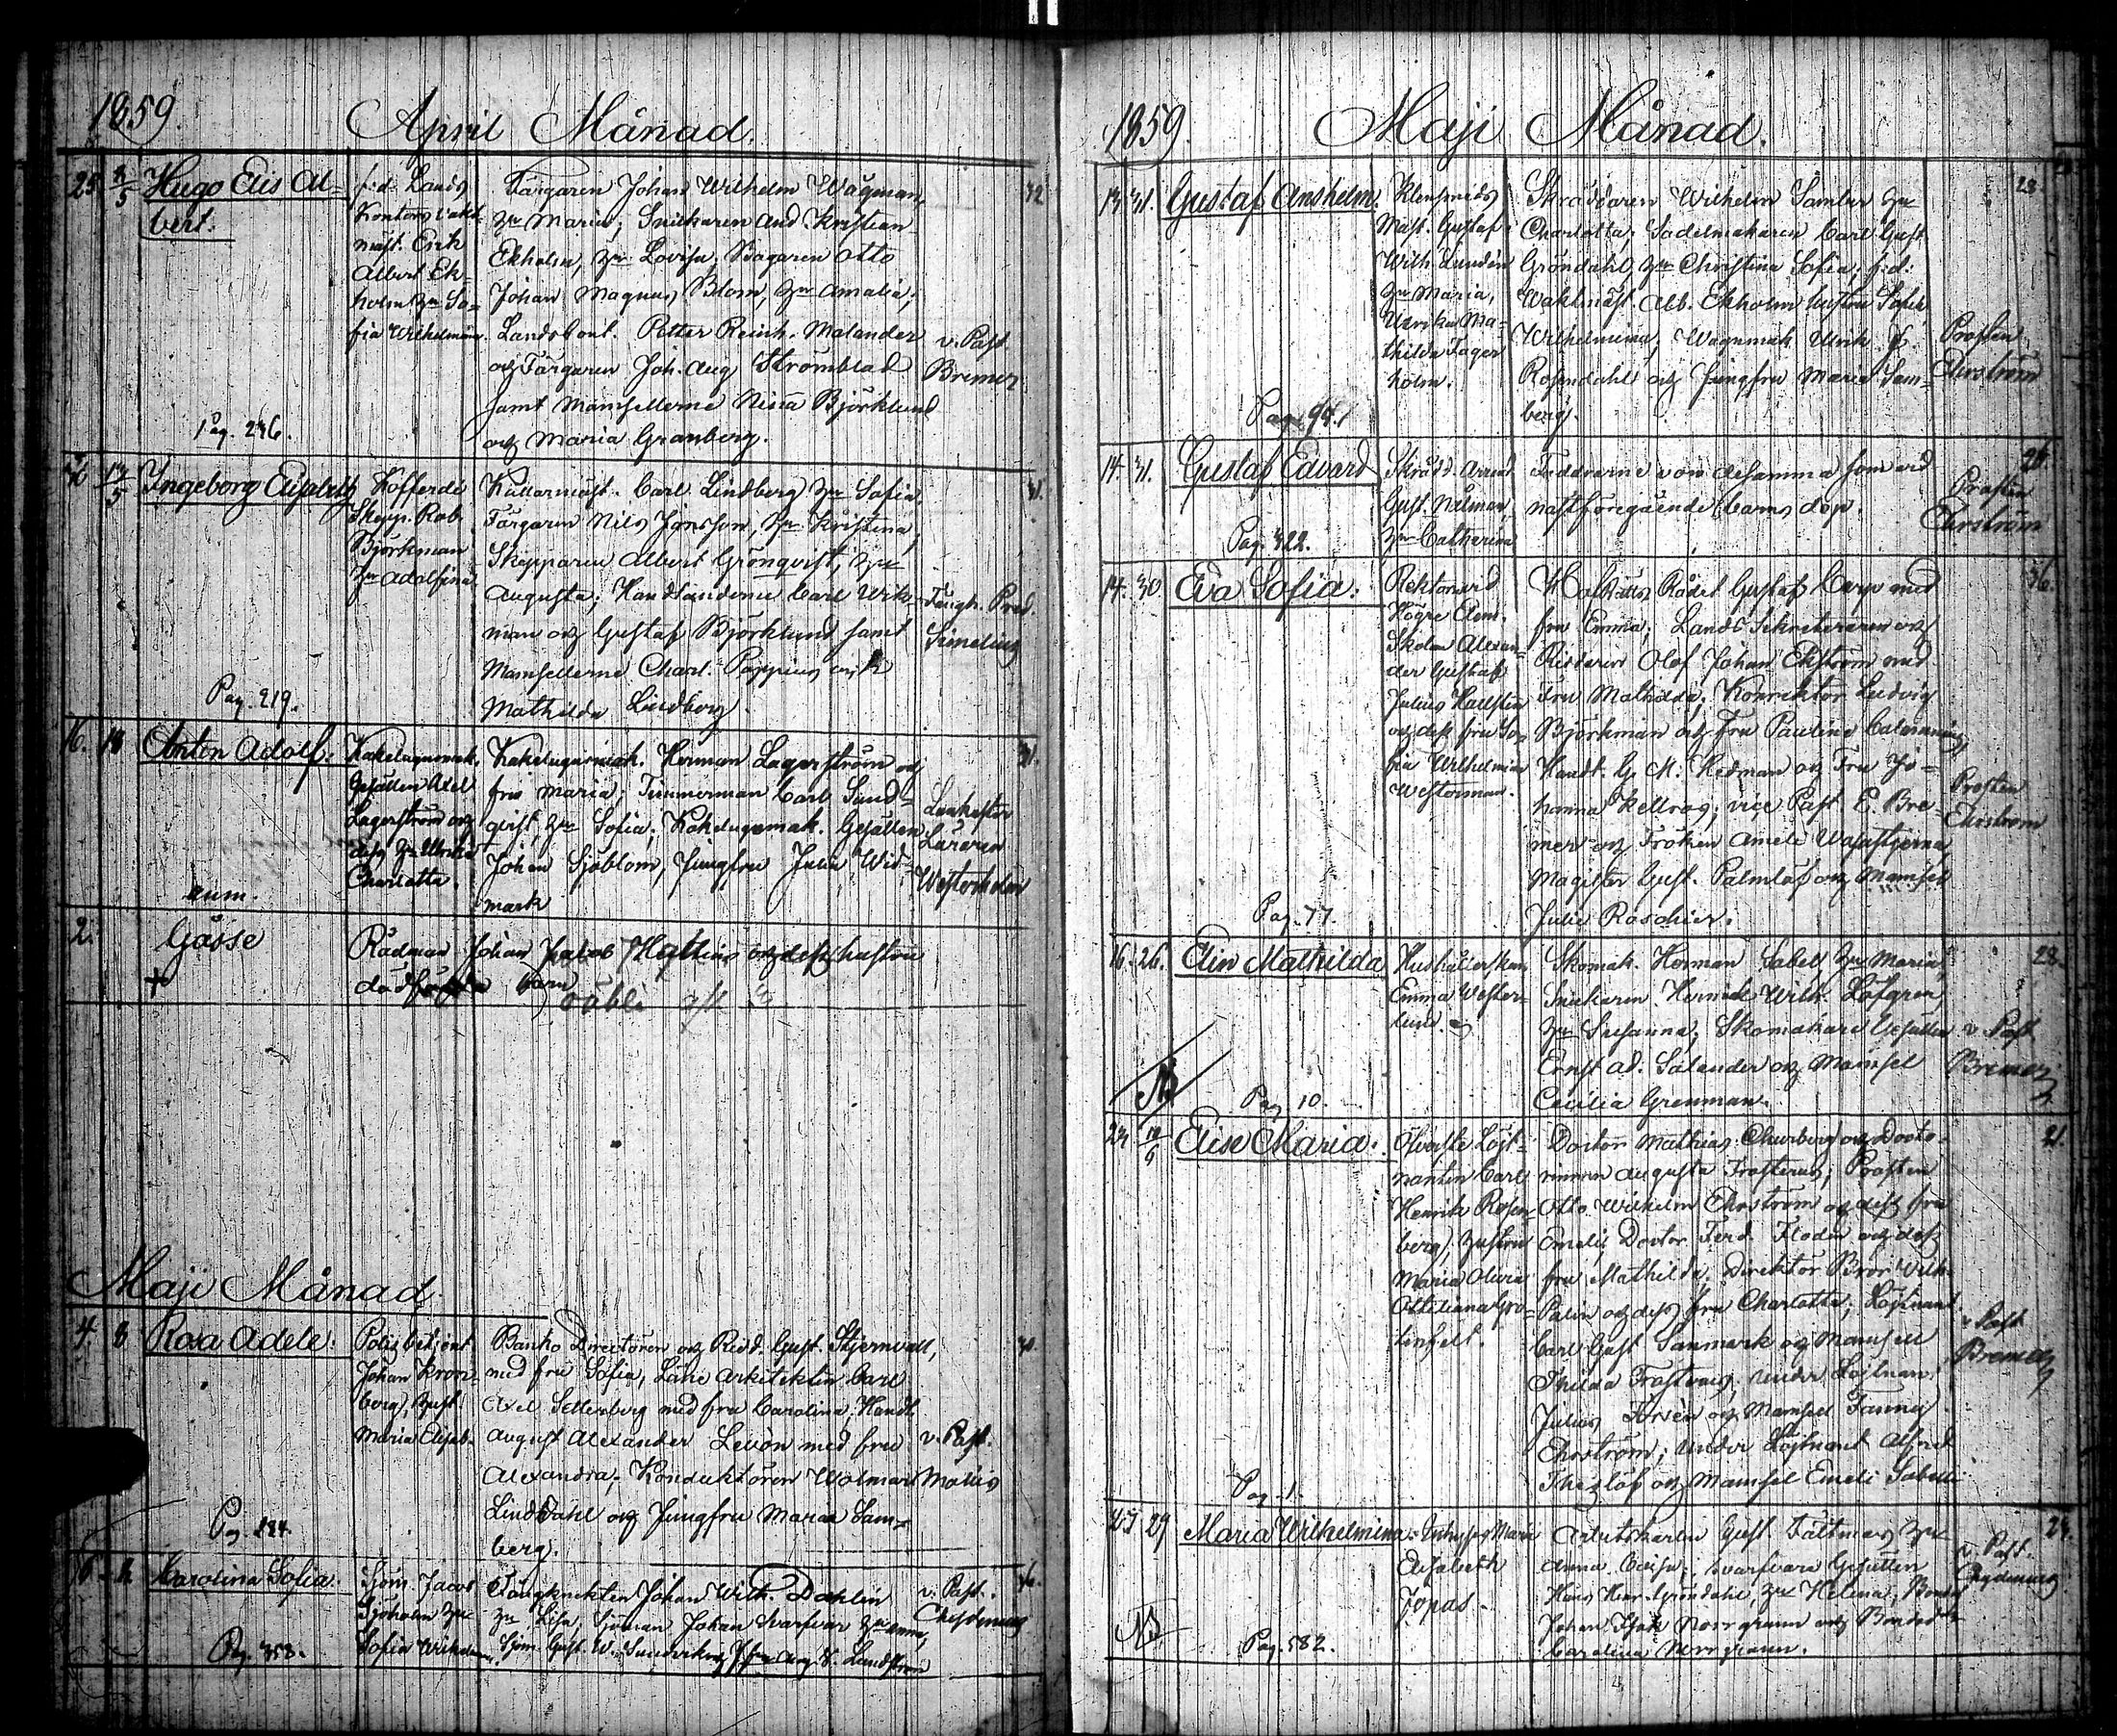 1859. April Månad.
25. 3/5 Hugo Elis Al-
bert.
f.d. Lands
Kontors vakt-
mäst. Erik
Albert Ek-
holm hu So-
fia Wilhelmina.
Färgaren Johan Wilhelm Wågman,
hu Maria; Snickaren And. Kristian
Ekholm, hu Lovisa, Bagaren Otto
Johan Magnus Blom, hu Amalia;
Landsbont. Petter Reinh. Malander
och Färgaren Joh. Aug Strömblad
samt Mamsellerne Nina Björklund
och Maria Granberg.
v. Past.
Bremer
32
Pag. 246.
Ingeborg Elisabeth
Kofferdi
Skepp. Rob.
Björkman
hu Adolfina
Carl Lindberg hu Sofia,
Färgaren Nils Jönsson, hu Kristina,
Skepparen Albert Grönqvist, hu
Augusta; Handlanderne Carl Wik-
man och Gustaf Björklund samt
Mamsellerne Charl. Poppius och
Mathilda Lindberg.
Fängh. Pred.
Simelius
Pag. 219.
16. 18 Anton Adolf.
Kakelugnsmak.
Gesällen Axel
Lagerström och
dess hu Ulrika
Charlotta.
Kakelugnsmak. Herman Lagerström och
fru Maria; Timmerman Carl Sund-
qvist, hu Sofia; Kakelugnsmak. Gesällen
Johan Sjöblom, Jungfru Julia Wid-
mark
Lankaster
Läraren
Westerholm
31.
2. Gosse
+
Rådman Johan Jakob Mathias och dess hustru
dödfödda barn
Maji Månad.
4. 8 Rosa Adele.
Polisbetjent
Johan Kron-
berg, hust
Maria Elisab.
Banko Directören och Ridd. Gust. Stjernvall,
med fru Sofia, Läne Arkitekten Carl
Axel Setterberg med fru Carolina, Handl.
August Alexander Levon med fru
Alexandra; Konduktören Wolmar
Lind Dahl och Jungfru Maria Sam-
berg.
v. Past.
Matlis
30.
Pag. 184.
6 Carolina Sofia.
Sjöm. Jacob
Sjöholm hu
Sofia Wilhelm.
Fångknekten Johan Wilh. Dahlin
hu Lisa, Sjöman Johan Svarfvar hu Anna,
v. Past.
Chydenius
36.
Pag. 353.
1859. Maji Månad.
13. 31. Gustaf Anshelm.
Klensmeds
Mäst. Gustaf
Wilh. Lundén
hu Maria,
Ulrika Ma-
thilda Fager
holm.
Skräddaren Wilhelm Samber hu
Charlotta; Sadelmakaren Carl Gust
Gröndahl, hu Christina Sofia; f.d.
Waktmäst. Alb. Ekholm hustru Sofia
Wilhelmina; Wagnmak. Ulrik J.
Rosendahl och Jungfru Maria Sam-
berg.
Prosten
Ehrström
23.
Pag. 94.
14. 31. Gustaf Edvard
Skrädd. Arvid
Gust. Nålman,
hu Catharina
Faddrarne voro desamma som vid
nästföregående barns dop.
Prosten
Ehrström
Pag. 322.
14. 30 Eva Sofia.
Rektorn vid
Högre Elem.
Skolan Alexan-
der Gustaf
Julius Hallstén
och dess fru So-
fia Wilhelmina
Westerman.
Hofrätts Rådet Gustaf Carp med
fru Emma; Lands Sekreteraren och
Riddaren Olof Johan Ekström med
Fru Mathilda; Konrektor Ludvig
Björkman och Fru Paulina Calamnius,
Handl. G. M. Hedman och Fru Jo-
hanna Kellrog; vice Past. E. Bre-
mer och Fröken Amele Wasastjerna,
Magister Gust. Palmlöf och Mamsel
Julie Roschier.
Prosten
Ehrström
36.
Pag. 77.
16. 26. Elin Mathilda
Hushållerskan
Emma Wester-
lund.
Skomak. Herman Sabel hu Maria,
Snickaren Hernid Wilh. Löfgren,
hu Susanna; Skomakare Gesällen
Ernst Ad. Salander och Mamsel
Cecilia Grenman.
v. Past
Bremer
28.
Pag. 10.
Elise Maria.
Öfverste Löjt-
nanten Carl
Henrik Rosen-
berg, hustru
Maria Olivia
Ottiliana Gro-
tenfelt.
Doctor Mathias Churberg och Docto-
rinnan Augusta Frosterus; Prosten
Otto Wilhelm Ehrström och dess fru
Emelie; Doctor Ferd. Flodin och dess
fru Mathilda. Direktör Bror Wilh.
Palin och dess fru Charlotta; Löjtnant
Carl Gust Sanmark och Mamsell
Thilda Frosterus; Under Löjtnan.
Julius Forsén och Mamsell Fanny
Ehrström; Under Löjtnant Alfred
Thesleff och Mamsel Emeli Sabelli
v. Past
Bremer
Pag. 1.
29 Maria Wilhelmina.
Maria
Elisabeth
Jopas.
Arbetskarlen Gust. Fältmars hu
Anna Lovisa; Svarfvare Gesällen
Hans Henr. Gröndahl, hu Helena; Bonden
Johan Isak Norrgrann och Bondedtr
Carolina Norrgrann.
v. Past.
Chydenius
24.
Pag. 582.